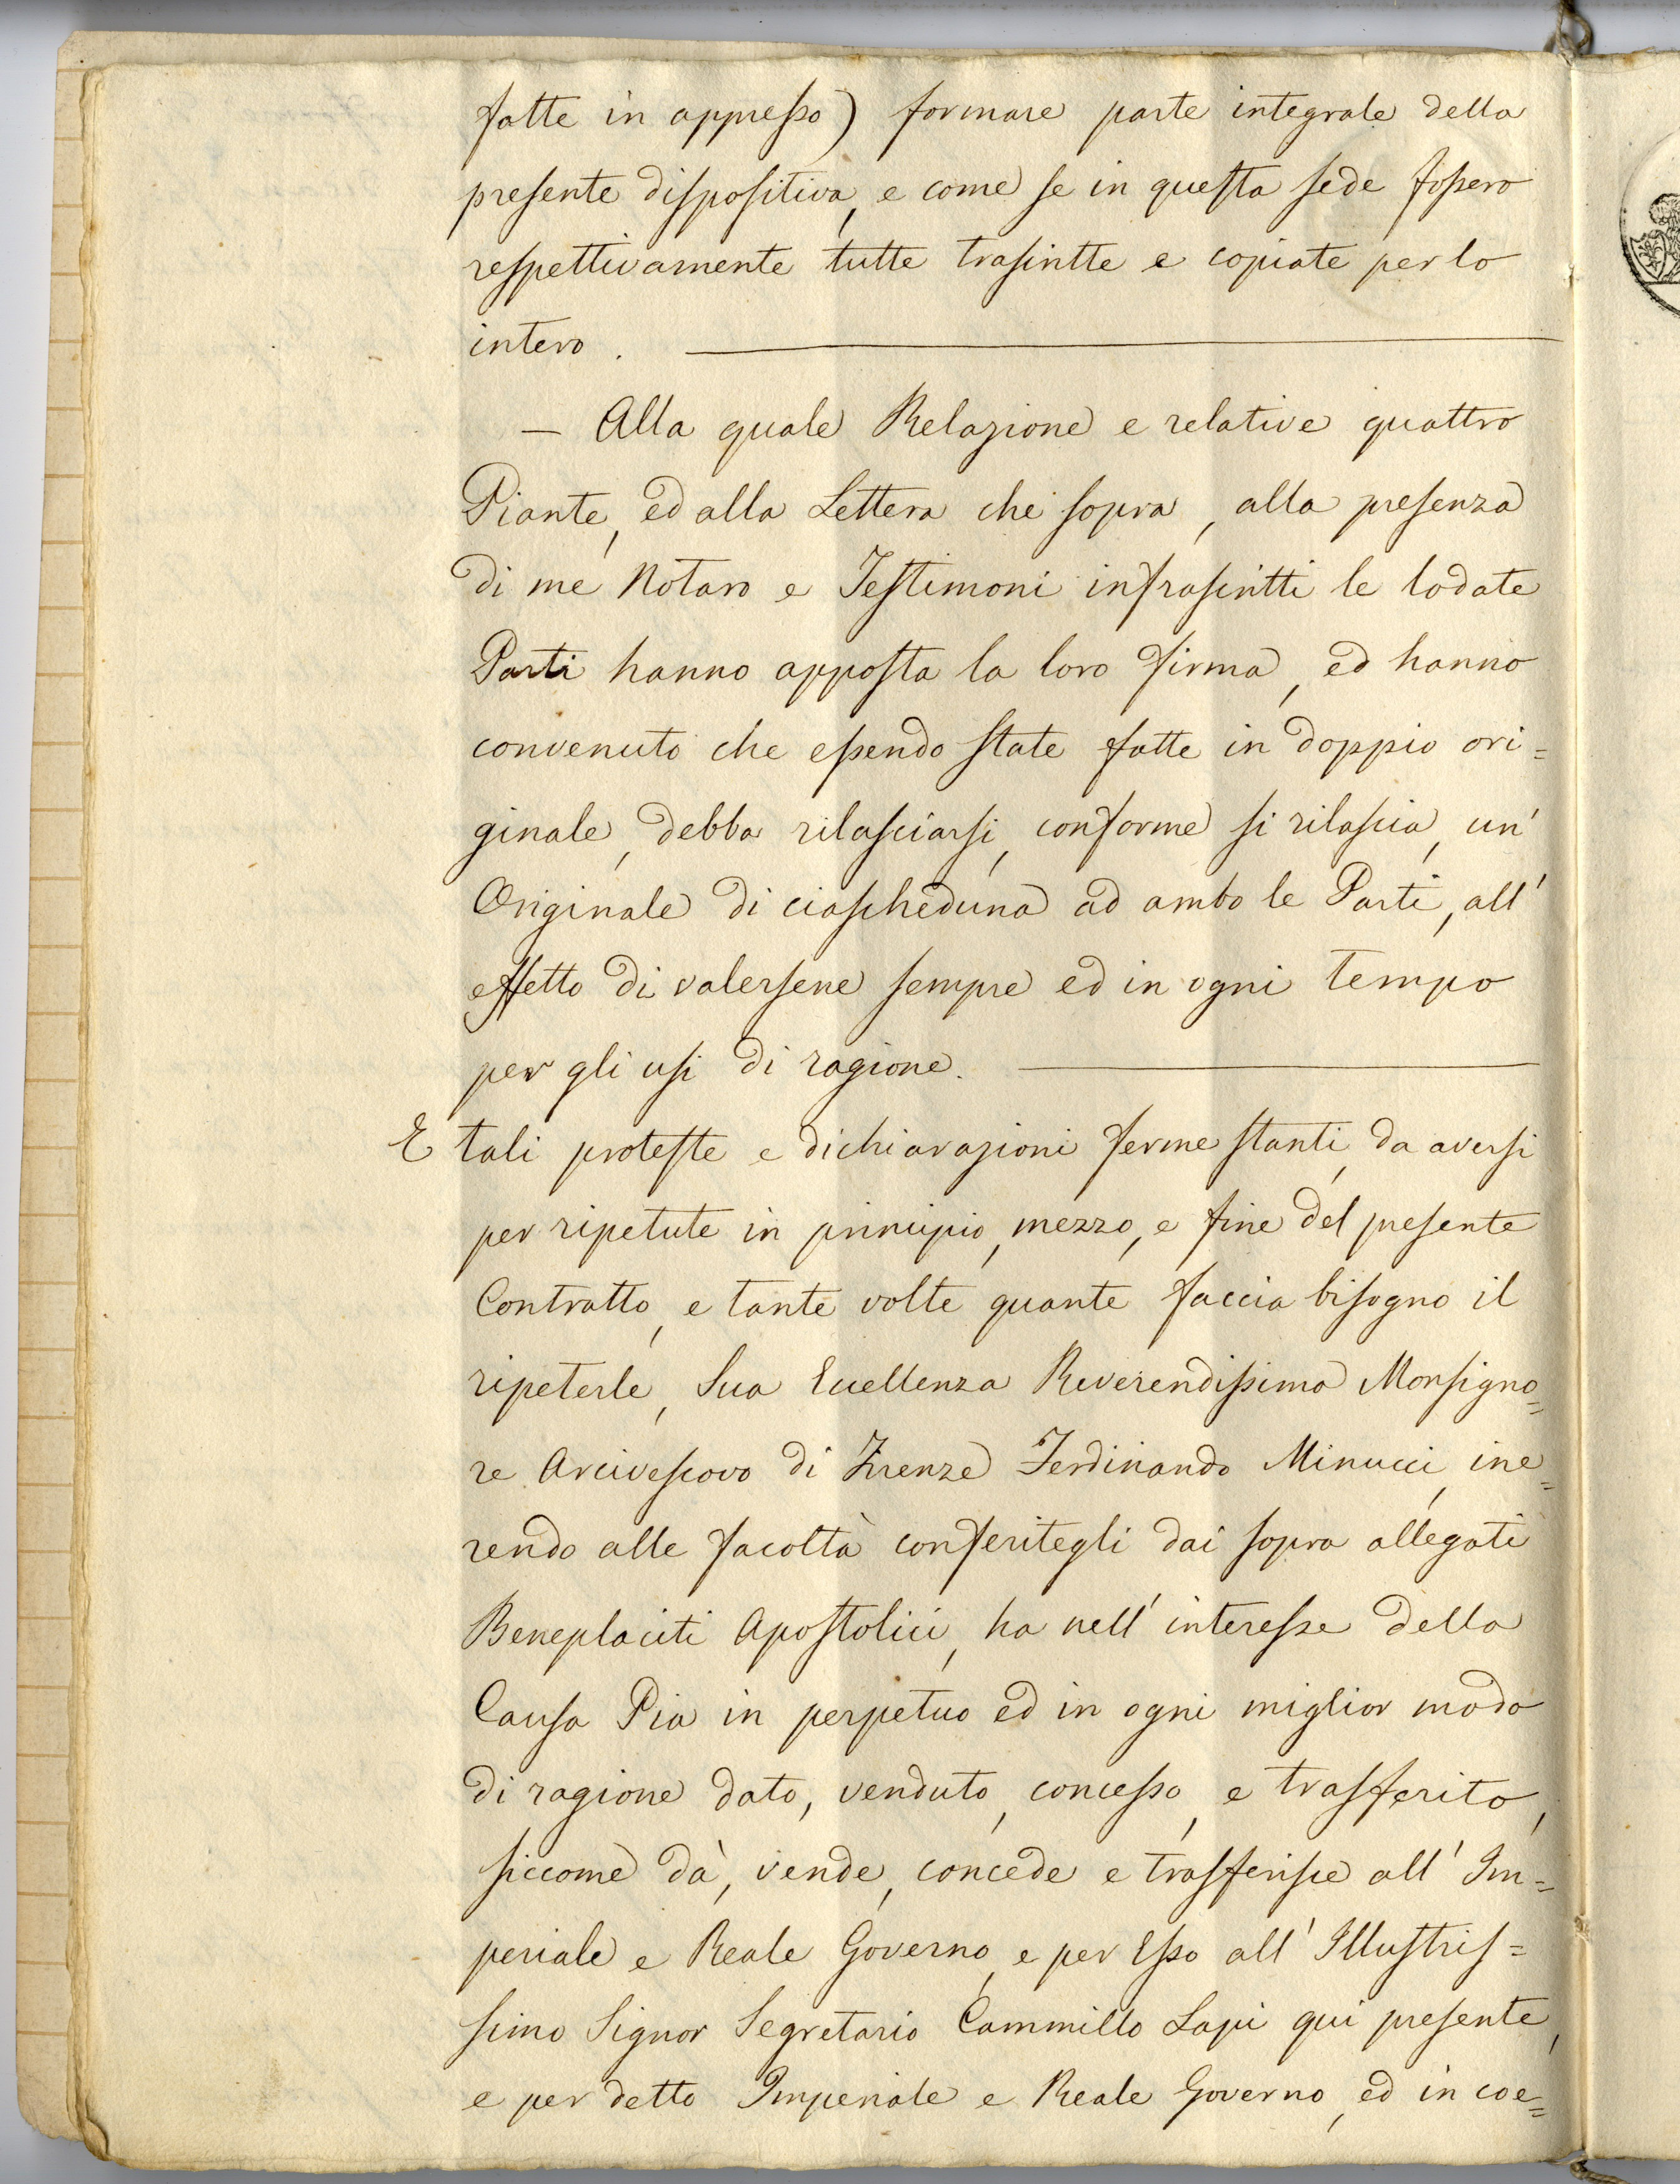 fatte in appresso) formare parte integrale della
presente dispositiva, e come se in questa sede fossero
respettivamente tutte trascritte e copiate per lo
intero.
— Alla quale Relazione e relative quattro
Piante, ed alla Lettera che sopra, alla presenza
di me Notaro e Testimoni infrascritti le lodate
Parti hanno apposta la loro firma, ed hanno
convenuto che essendo state fatte in doppio ori=
ginale, debba rilasciarsi, conforme si rilascia, un'
Originale di ciascheduna ad ambo le Parti, all'
effetto di valersene sempre ed in ogni tempo
per gli usi di ragione.
E tali proteste e dichiarazioni ferme stanti, da aversi
per ripetute in principio, mezzo, e fine del presente
Contratto, e tante volte quante faccia bisogno il
ripeterle, Sua Eccellenza Reverendissima Monsigno=
re Arcivescovo di Firenze Ferdinando Minucci, ine=
rendo alle facoltà conferitegli dai sopra allegati
Beneplaciti Apostolici, ha nell'interesse della
Causa Pia in perpetuo ed in ogni miglior modo
di ragione dato, venduto, concesso, e trasferito,
siccome dà, vende, concede e trasferisce all'Im=
periale e Reale Governo, e per Esso all'Illustris=
simo Signor Segretario Cammillo Lapi qui presente,
e per detto Imperiale e Reale Governo, ed in coe=